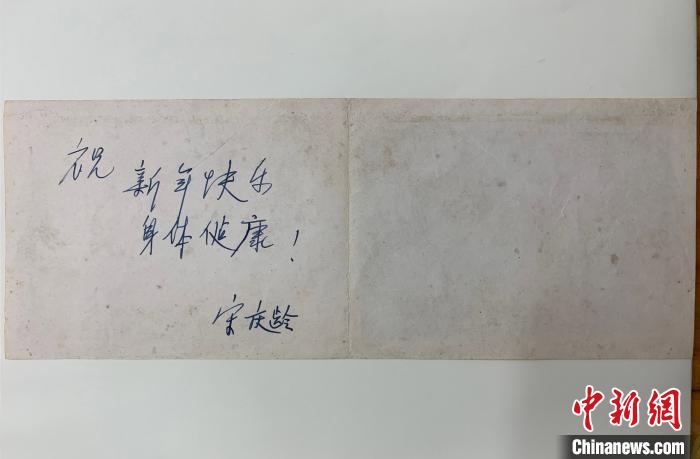 祝
新年快乐
身体健康！
宋庆龄
中新网
Chinanews.com